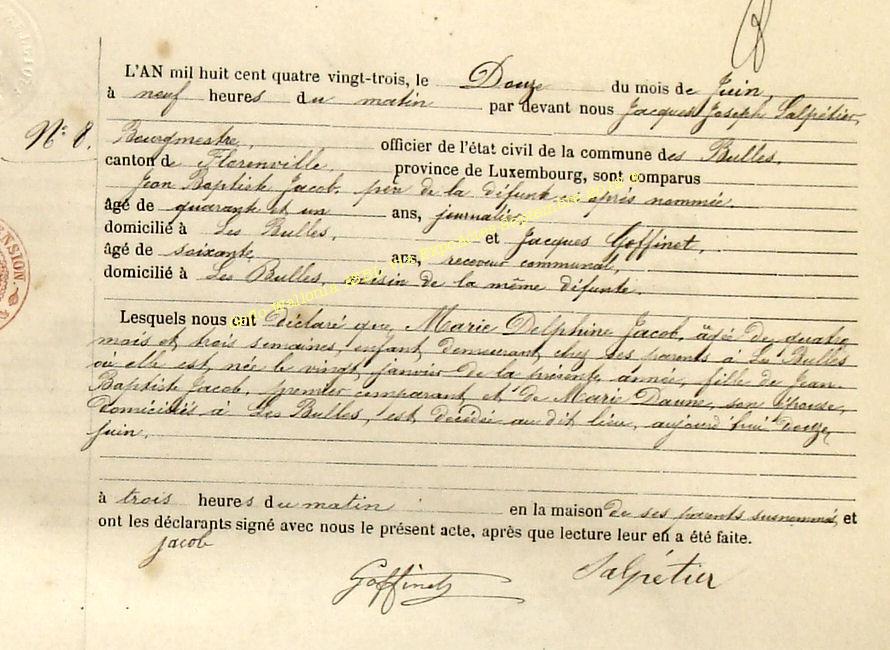 L'AN mil huit cent quatre vingt-trois, le Douze du mois de Juin,
à neuf heures du matin par devant nous Jacques Joseph Salpétier,
N° 8.
Bourgmestre, officier de l'état civil de la commune des Bulles,
canton de Florenville, province de Luxembourg, sont comparus
Jean Baptiste Jacob, père de la défunte ci après nommée
âgé de quarante et un ans, journalier
domicilié à Les Bulles, et Jacques Goffinet,
âgé de soixante ans, receveur communal,
domicilié à Les Bulles, voisin de la même défunte.
Lesquels nous ont déclaré que, Marie Delphine Jacob, âgée de quatre
mois et trois semaines, enfant demeurant chez ses parents à Les Bulles
où elle est née le vingt janvier de la présente année, fille de Jean
Baptiste Jacob, premier comparant et de Marie Daune, son épouse,
domiciliés à Les Bulles, est décédée au dit lieu, aujourd'hui douze
juin,
à trois heures du matin en la maison de ses parents susnommés, et
ont les déclarants signé avec nous le présent acte, après que lecture leur en a été faite.
Jacob
Goffinet Salpétier
ENSION.